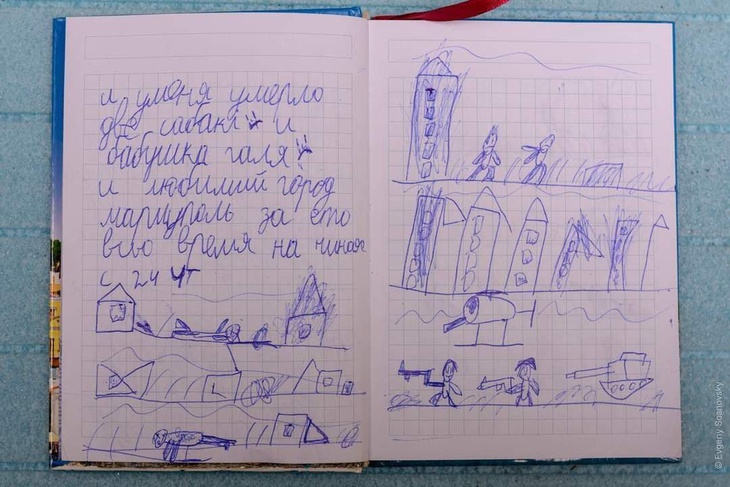 и уменя умерло
две сабаки и
бабушка галя
и любимий город
мариуполь за ето
всво время на чиная
с 24 чт
© Evgeny Sosnovsky